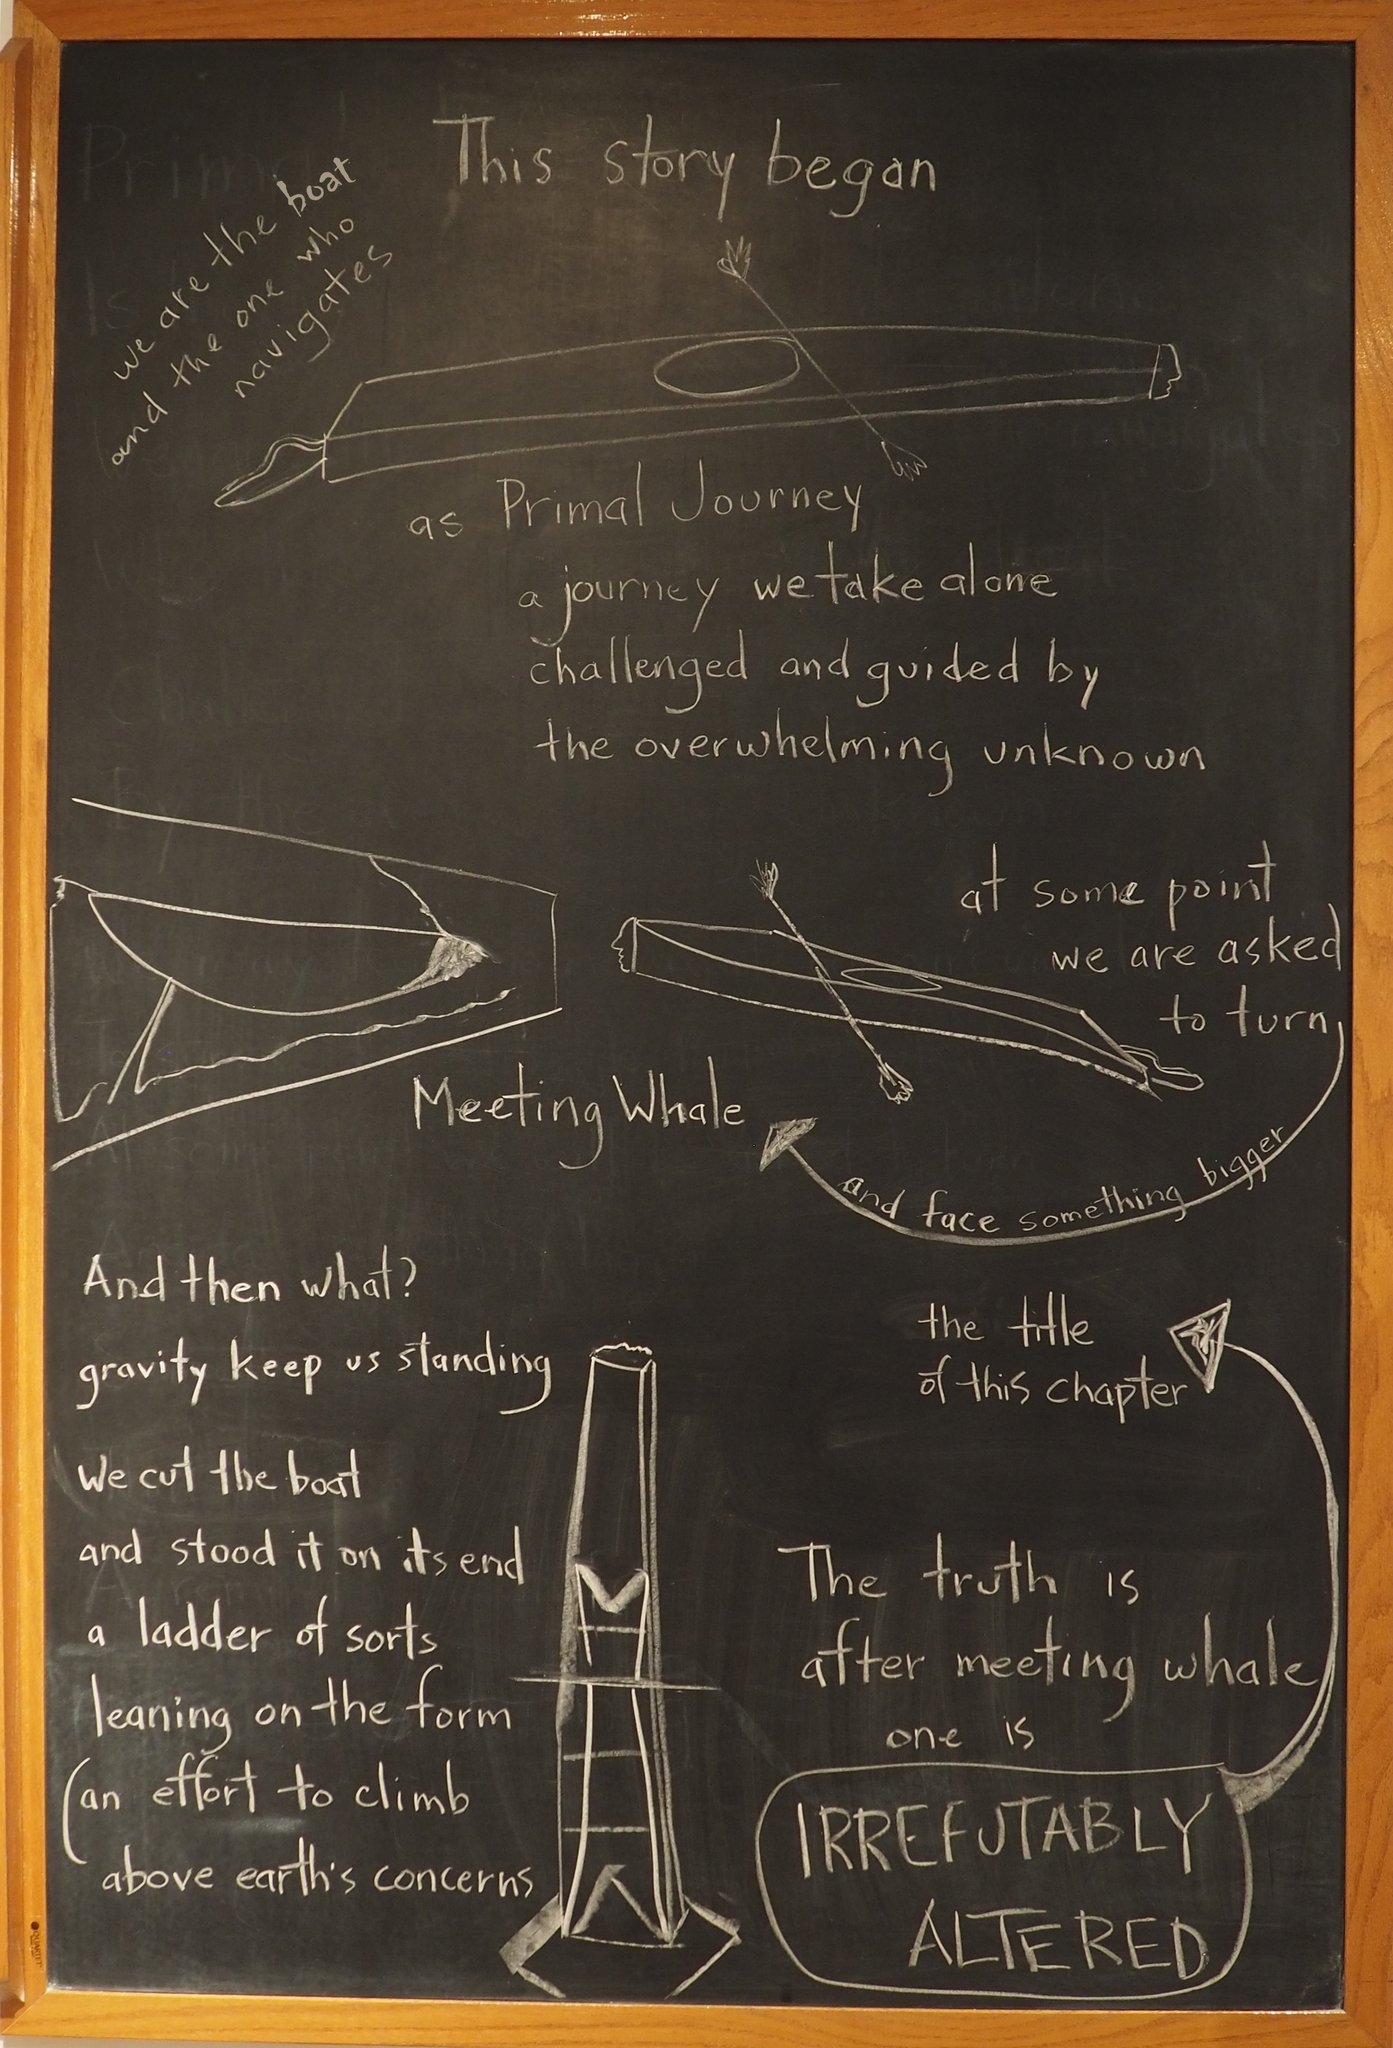 This story began
we are the boat
and the one who
navigates
as Primal Journey
a journey we take alone
challenged and guided by
the overwhelming unknown
at some point
we are asked
to turn
and face something bigger
Meeting Whale
And then what?
gravity keep us standing
We cut the boat
and stood it on its end
a ladder of sorts
leaning on the form
(an effort to climb
above earth's concerns
the title
of this chapter
The truth is
after meeting whale
one is
IRREFUTABLY
ALTERED